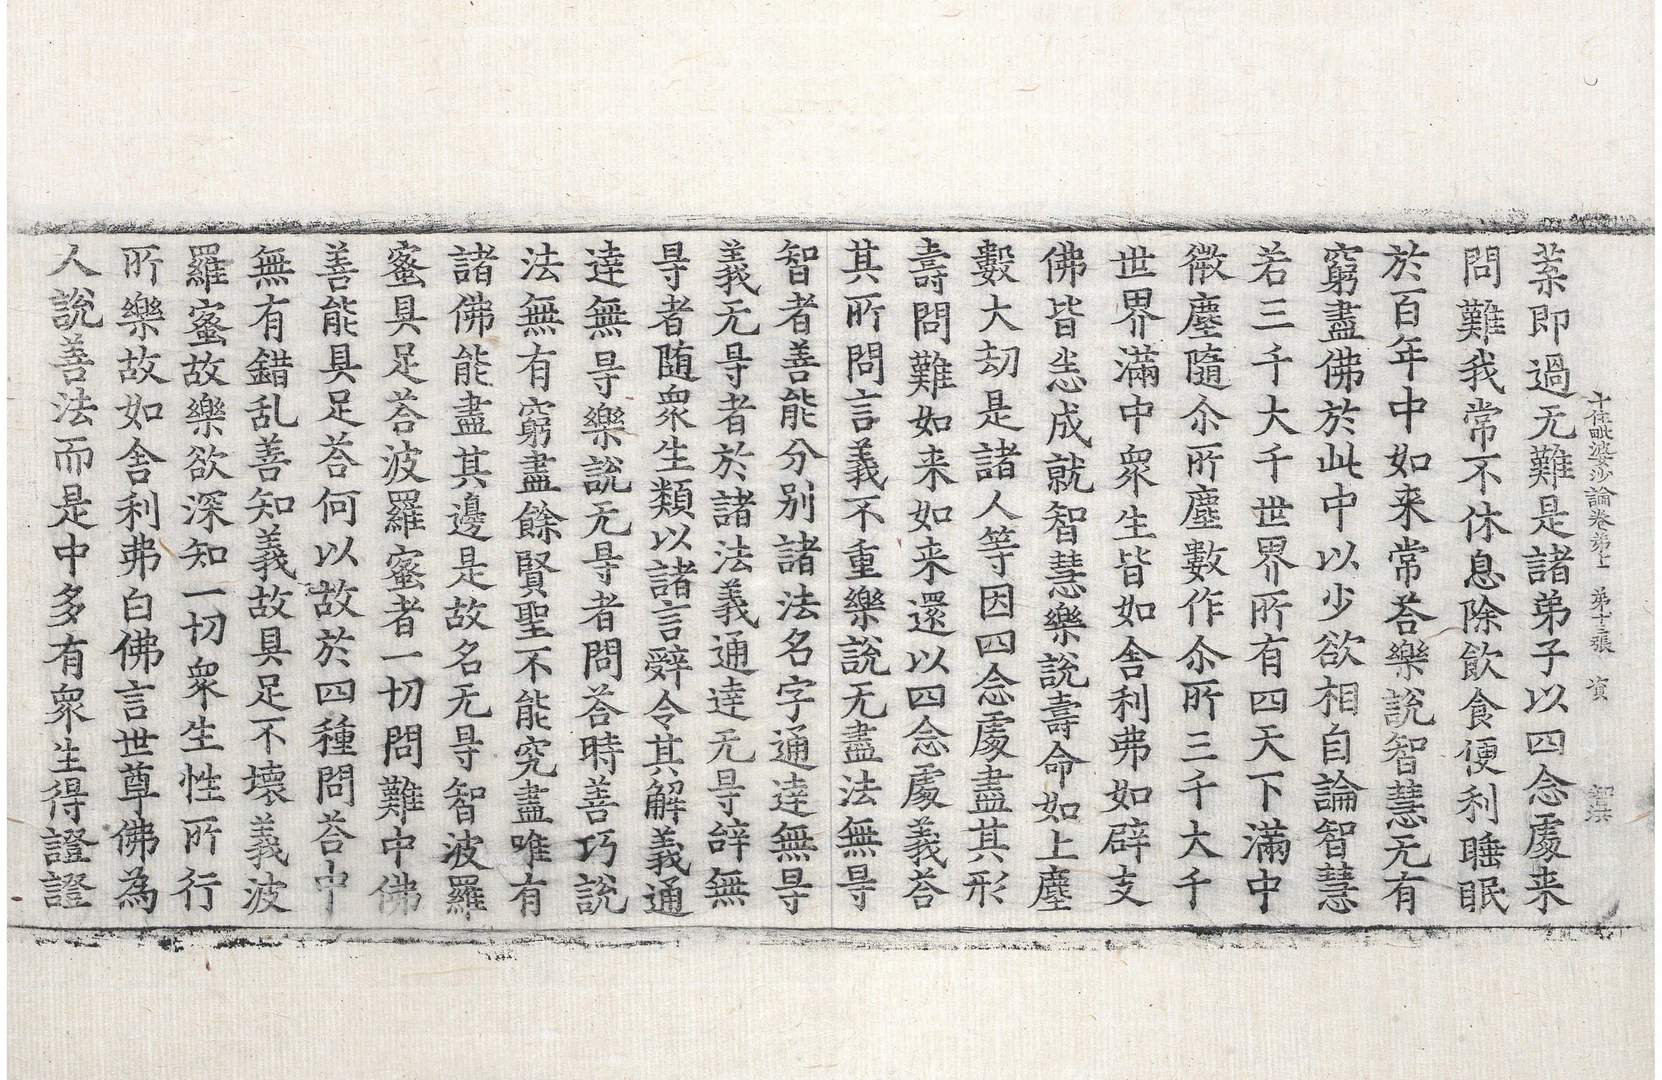 十住毗婆沙論卷第十一 第十三張 資
葉即過无難是諸弟子以四念處来
問難我常不休息除飮食便利睡眠
於百年中如来常荅樂說智慧无有
窮盡佛於此中以少欲相自論智慧
若三千大千世界所有四天下滿中
微塵隨尒所塵數作尒所三千大千
世界滿中衆生皆如舎利弗如辟支
佛皆悉成就智慧樂說壽命如上塵
數大劫是諸人等因四念處盡其形
壽問難如来如来還以四念處義荅
其所問言義不重樂說无盡法無㝵
智者善能分別諸法名字通達無㝵
義无㝵者於諸法義通達无㝵辝無
㝵者随衆生類以諸言辤令其解義通
達無㝵樂說无㝵者問荅時善巧說
法無有窮盡餘賢聖不能究盡唯有
諸佛能盡其邊是故名无㝵智波羅
蜜具足荅波羅蜜者一切問難中佛
善能具足荅何以故於四種問荅中
無有錯乱善知義故具足不壞義波
羅蜜故樂欲深知一切衆生性所行
所樂故如舎利弗白佛言世尊佛為
人說善法而是中多有衆生得證證